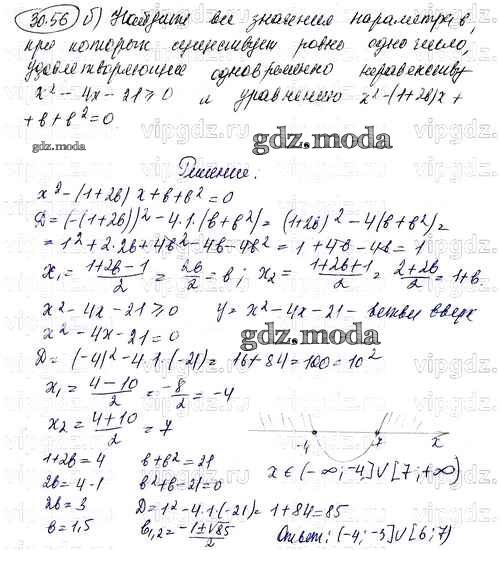 30.56 б) Найдите все значения параметра в,
при которых существует ровно одно число,
удовлетворяющее одновременно неравенству
x² - 4x - 21 ≥ 0 и уравнению x² - (1+2в)x +
+ в + в² = 0
gdz.moda
gdz.moda
Решение.
x² - (1+2в)x + в + в² = 0
D = (-(1+2в))² - 4·1·(в+в²) = (1+2в)² - 4(в+в²) =
= 1² + 2·2в + 4в² - 4в - 4в² = 1 + 4в - 4в = 1
x₁ = (1+2в-1)/2 = 2в/2 = в; x₂ = (1+2в+1)/2 = (2+2в)/2 = 1+в
x² - 4x - 21 ≥ 0 y = x² - 4x - 21 - ветви вверх
x² - 4x - 21 = 0
gdz.moda
D = (-4)² - 4·1·(-21) = 16 + 84 = 100 = 10²
x₁ = (4-10)/2 = -8/2 = -4
x₂ = (4+10)/2 = 7
-4 7 x
1+2в = 4 в+в² = 21 x ∈ (-∞; -4] ∪ [7; +∞)
2в = 4-1 в²+в-21 = 0
2в = 3 D = 1² - 4·1·(-21) = 1 + 84 = 85
в = 1,5 в₁,₂ = (-1±√85)/2 Ответ: (-4; -3] ∪ [6; 7)